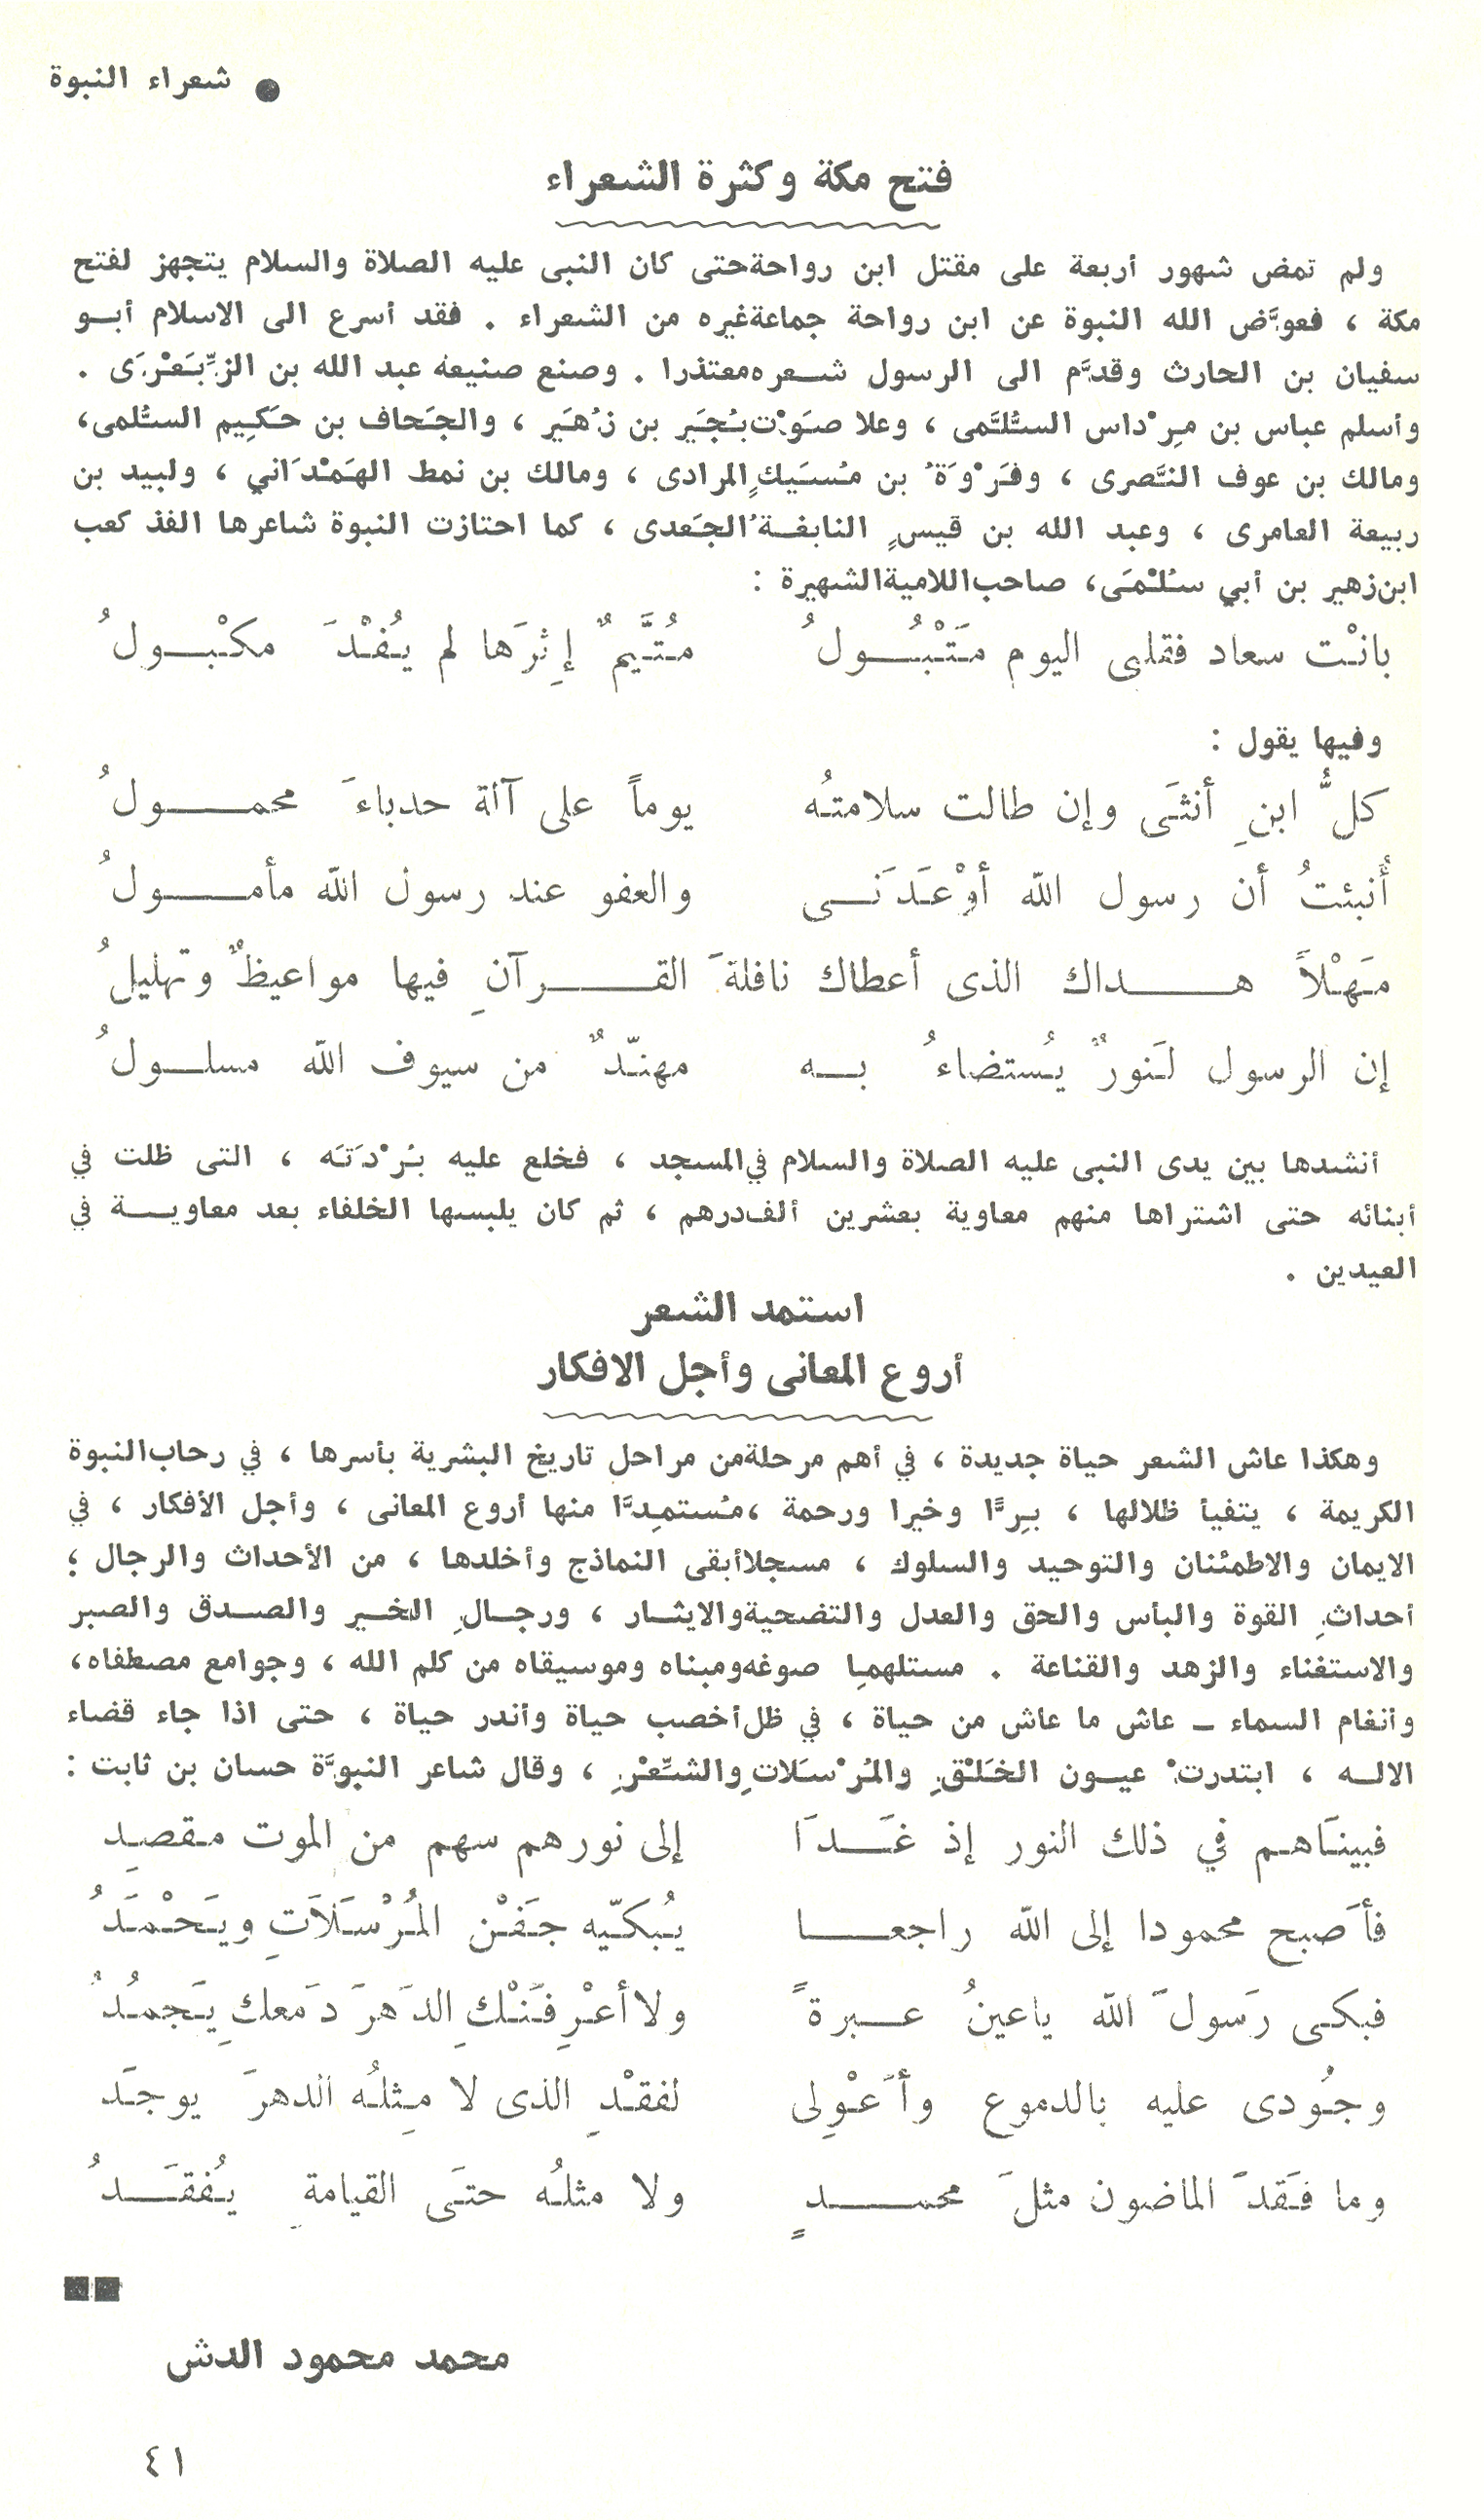 ● شعراء النبوة
فتح مكة وكثرة الشعراء
ولم تمض شهور أربعة على مقتل ابن رواحة حتى كان النبى عليه الصلاة والسلام يتجهز لفتح
مكة ، فعوَّض الله النبوة عن ابن رواحة جماعة غيره من الشعراء . فقد أسرع الى الاسلام أبــو
سفيان بن الحارث وقدَّم الى الرسول شـعره معتذرا . وصنع صنيعه عبد الله بن الزِّبَعْرَى .
وأسلم عباس بن مِرْداس السُّلَمى ، وعلا صَوْت بُجَير بن زُهَير ، والجَحاف بن حَكِيم السُّلمى،
ومالك بن عوف النَّصرى ، وفَرْوَةُ بن مُسَيكٍ المرادى ، ومالك بن نمط الهَمْدَاني ، ولبيد بن
ربيعة العامرى ، وعبد الله بن قيسٍ النابغـةُ الجَعدى ، كما احتازت النبوة شاعرها الفذ كعب
ابن زهير بن أبي سُلْمَى، صاحب اللامية الشهيرة :
بانْت سعاد فقلبى اليوم مَتْبُـــولُ مُتَيَّمٌ إِثرَها لم يُفْدَ مكْبــولُ
وفيها يقول :
كلُّ ابنِ أنثَى وإن طالت سلامتُه يوماً على آلة حدباءَ محمـــولُ
أُنبئتُ أن رسول الله أوْعَدَنــى والعفو عند رسول الله مأمـــولُ
مَهْلاً هـــداك الذى أعطاك نافلةَ القـــرآنِ فيها مواعيظٌ وتهليلُ
إن الرسول لَنورٌ يُستضاءُ بــه مهنّدٌ من سيوف الله مسلــولُ
أنشدها بين يدى النبى عليه الصلاة والسلام في المسجد ، فخلع عليه بُرْدَتَه ، التى ظلت في
أبنائه حتى اشتراها منهم معاوية بعشرين ألف درهم ، ثم كان يلبسها الخلفاء بعد معاويــة في
العيدين .
استمد الشعر
أروع المعانى وأجل الافكار
وهكذا عاش الشعر حياة جديدة ، في أهم مرحلة من مراحل تاريخ البشرية بأسرها ، في رحاب النبوة
الكريمة ، يتفيأ ظلالها ، بِرًّا وخيرا ورحمة ، مُستمِدًّا منها أروع المعانى ، وأجل الأفكار ، في
الايمان والاطمئنان والتوحيد والسلوك ، مسجلا أبقى النماذج وأخلدها ، من الأحداث والرجال ؛
أحداثِ القوة والبأس والحق والعدل والتضحية والايثـار ، ورجـالِ الخـير والصـدق والصبر
والاستغناء والزهد والقناعة . مستلهما صوغه ومبناه وموسيقاه من كلم الله ، وجوامع مصطفاه،
وأنغام السماء ــ عاش ما عاش من حياة ، في ظل أخصب حياة وأندر حياة ، حتى اذا جاء قضاء
الالـه ، ابتدرتْ عيـون الخَلْقِ والمُرْسَلاتِ والشِّعْرِ ، وقال شاعر النبوَّة حسان بن ثابت :
فبينَاهـم في ذلك النور إذ غَــدَا إلى نورهم سهم من الموت مقصِد
فأَصبح محمودا إلى الله راجعـــا يُبكّيه جَفْن المُرْسَلَاتِ ويَحْمَدُ
فبكـى رَسولَ الله ياعينُ عــبرةً ولا أعْرِفَنْكِ الدَهرَ دَمعكِ يَجمُدُ
وجُودى عليه بالدموع وأَعْوِلى لفقْدِ الذى لا مِثلُه الدهرَ يوجَد
وما فَقدَ الماضون مثلَ محمـــدٍ ولا مثلُه حتَى القيامةِ يُفقَــدُ
■■
محمد محمود الدش
٤١